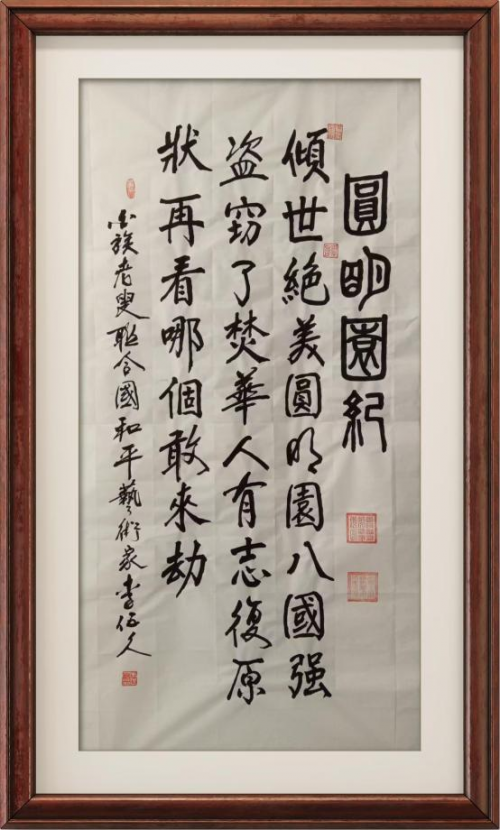 圓明園紀
傾世絕美圓明園八國强
盗窃了焚華人有志復原
狀再看哪個敢來劫
族老叟聯合國和平藝術家李人